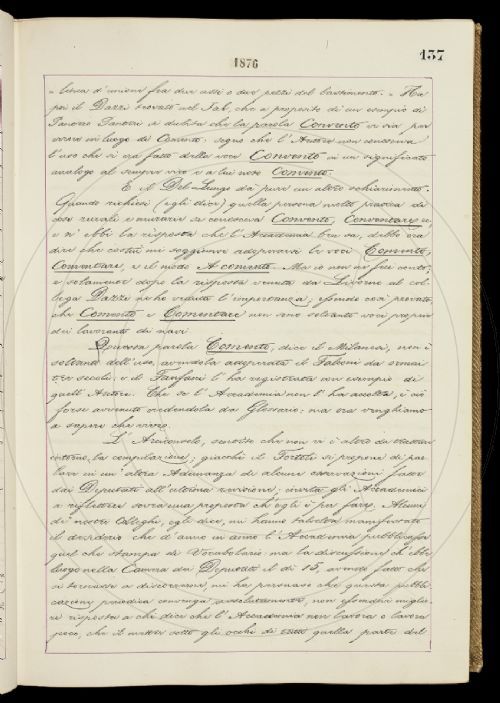 1876
137
"linea d'unione fra due assi o due pezzi del bastimento." Ha
poi il Dazzi trovato nel Sab, che a proposito di un esempio di
si dubita che la parola Convento vi sia per
errore in luogo di Comento: segno che l'Autore non conosceva
l'uso che si era fatto della voce Convento in un significato
analogo al sempre vivo e a lui noto Comento.
E il Del-Lungo dà pure un altro schiarimento.
Quando richiesi (egli dice) quella persona molto pratica di
cose rurali e murarie se conosceva Convento, Conventare ec.
e n'ebbi la risposta che l'Accademia ben sa, debbo ora
dire che costui mi soggiunse adoperarsi le voci Comento,
Commentare, e il modo A comento. Ma io non ne feci conto,
e solamente dopo la risposta venuta da Livorno al col-
lega Dazzi ne ho veduto l'importanza; essendo così provato
che Comento e Comentare non sono soltanto voci proprie
dei lavoranti di navi.
Questa parola Comento, dice il Milanesi, non è
soltanto dell'uso, avendola adoperata il Falconi da ormai
tre secoli; e il Fanfani l'ha registrata con esempio di
quell'Autore. Che se l'Accademia non l'ha accolta, è ciò
forse avvenuto vedendola da Glossario: ma ora vengliamo
a sapere che vive.
L'Arciconsolo, sentito che non vi è altro da trattare
intorno la compilazione; giacchè il Tortoli si propone di par-
lare in un'altra Adunanza di alcune osservazioni fatte
dai Deputati all'ultima revisione; invita gli Accademici
a riflettere sovra una proposta ch'egli è per fare. Alcuni
dei nostri Colleghi, egli dice, mi hanno talvolta manifestato
il desiderio che d'anno in anno l'Accademia pubblicasse
quel che stampa di Vocabolario: ma la discussione ch'ebbe
luogo nella Camera dei Deputati il dì 15, avendo fatto che
si tornasse a discorrerne, mi ha persuaso che questa pubbli-
cazione periodica convenga assolutamente, non essendovi miglio-
re risposta a chi dice che l'Accademia non lavora o lavora
poco, che il metter sotto gli occhi di tutti quella parte del